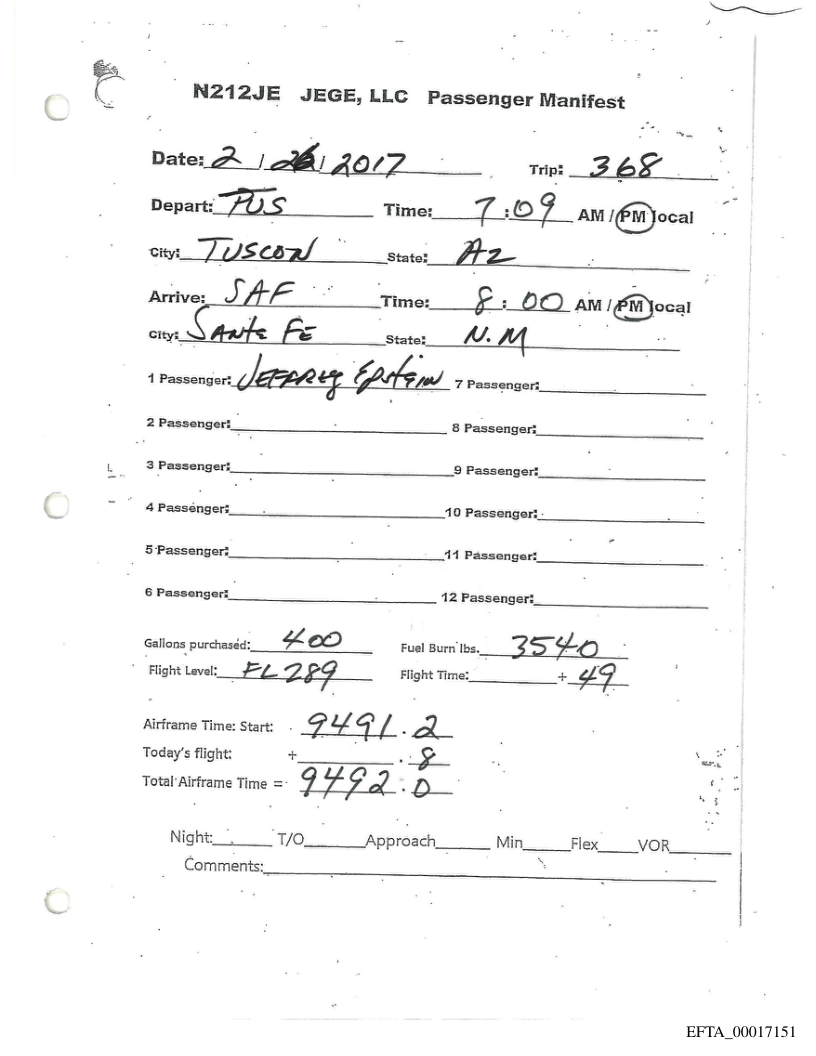 N212JE JEGE, LLC Passenger Manifest
Date: 2 / / 2017 Trip: 368
Depart: TUS Time: 7:09 AM / PM local
City: TUSCON State: AZ
Arrive: SAF Time: 8:00 AM / PM local
City: SANTE FE State: N.M
1 Passenger: JEFFREY EPSTEIN 7 Passenger:
2 Passenger: 8 Passenger:
3 Passenger: 9 Passenger:
4 Passenger: 10 Passenger:
5 Passenger: 11 Passenger:
6 Passenger: 12 Passenger:
Gallons purchased: 400 Fuel Burn lbs. 3540
Flight Level: FL289 Flight Time: + 49
Airframe Time: Start: 9491.2
Today's flight: + .8
Total Airframe Time = 9492.0
Night: T/O Approach Min Flex VOR
Comments:
EFTA_00017151